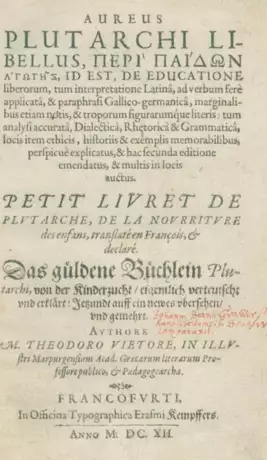 AUREUS
PLUTARCHI LI-
BELLUS, ΠΕΡῚ ΠΑΊΔΩΝ
ἈΓΩΓΗ͂Σ, ID EST, DE EDUCATIONE
liberorum, tum interpretatione Latinâ, ad verbum ferè
applicatâ, & paraphrasi Gallico-germanicâ, marginali-
bus etiam notis, & troporum figurarumque literis: tum
analysi accuratâ, Dialecticâ, Rhetoricâ & Grammaticâ,
locis item ethicis, historiis & exemplis memorabilibus,
perspicuè explicatus, & hac secunda editione
emendatus, & multis in locis
auctus.
PETIT LIVRET DE
PLVTARCHE, DE LA NOVRRITVRE
des enfans, translaté en François, &
declaré.
Das güldene Büchlein Plu-
tarchi, von der Kinderzucht / eigentlich verteutscht
vnd erklärt: Jetzundt auff ein newes vbersehen /
vnd gemehrt.
AVTHORE
M. THEODORO VIETORE, IN ILLV-
stri Marpurgensium Acad. Græcarum literarum Pro-
fessore publico, & Pædagogarcha.
FRANCOFVRTI,
In Officina Typographica Erasmi Kempffers.
ANNO M. DC. XII.